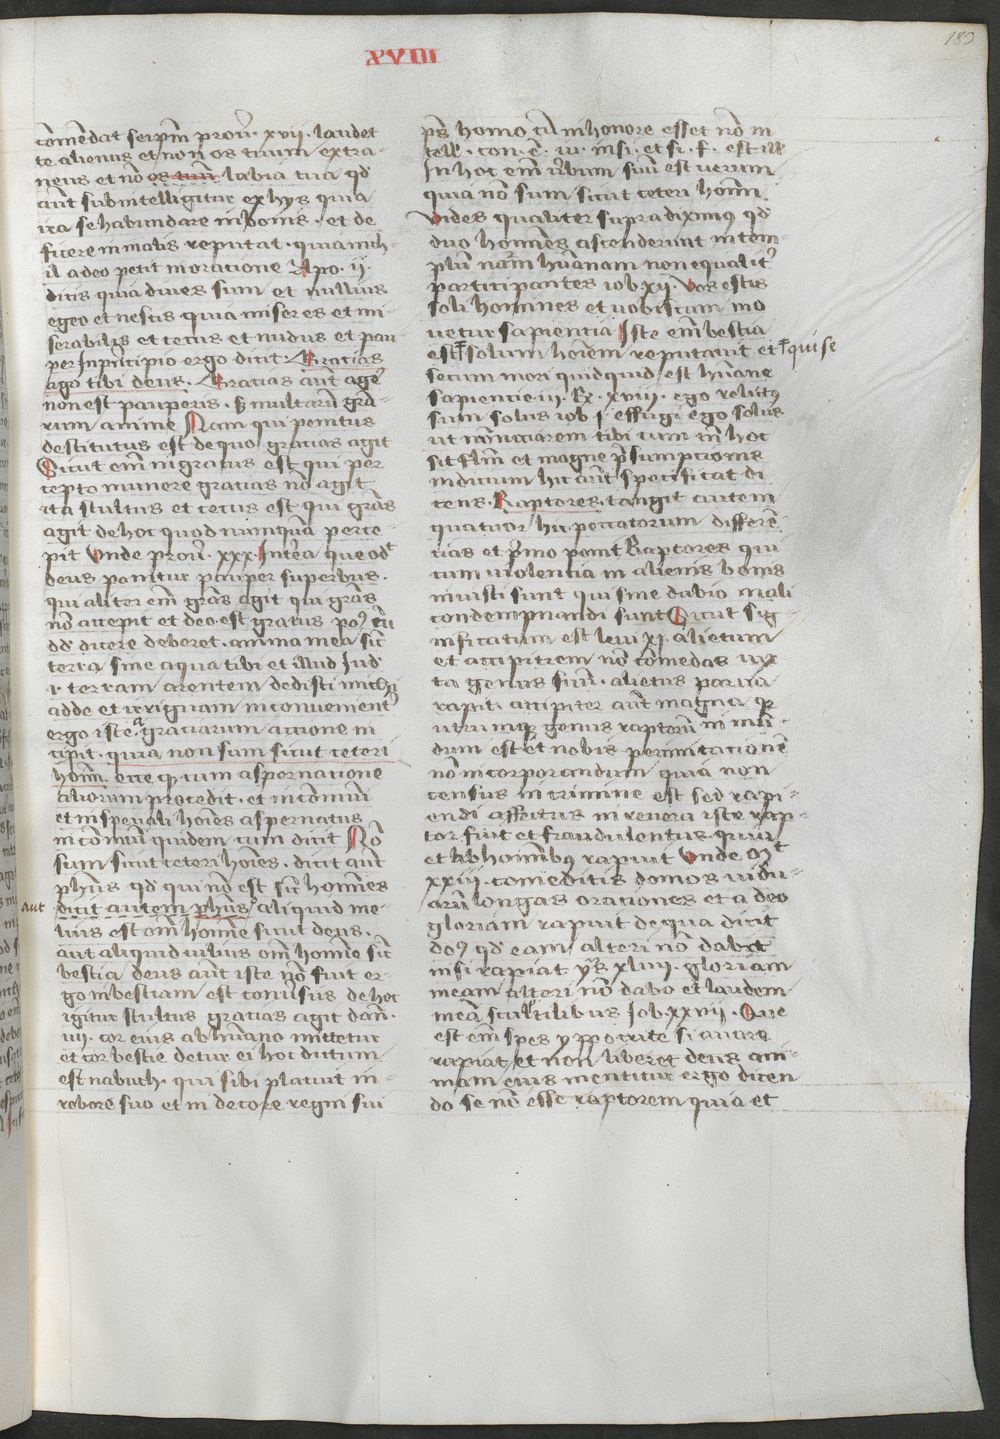 182
XVIII
com̄endat seip̄m prou̾. xvii. laudet
te alienus et non os tuum extra-
neus et nō os tuū labia tua qđ
aūt subintelligitur ex hys quia
ita se habundare in bonis. et de
ficere in malis reputat. quia nich-
il a deo petit in oratione Apo. ii.
dicis quia diues sum et nullius
egeo et nescis quia miser es et mi-
serabilis et cecus et nudus et pau
per Inpͥncipio ergo dicit. Gracias
ago tibi deus. Gracias aūt age̾
non est pauperis. sꝫ multarū gra-
rum anime Nam qui penitus
destitutus est de quo gracias agit
Sicut em̄ ingratus est qui per
cepto munere gracias nō agit
ita stultus et cecus est qui grās
agit de hoc quod numq̄ua perce-
pit Vnde prou̾. xxx. Int̾ea que odͭ
deus ponitur pauper superbus.
qui aliter em̄ grās agit qui grās
nō accepit et deo est gratus poꝯ cū
dđ dicere deberet. anima mea sīc
terra sine aqua tibi et illud Jud̾
i. terram arentem dedisti michi
adde et irriguam inconuenient̾
ergo iste a graciarum actione in
cipit. quia non sum sicut ceteri
hom̄. ecce qꝫ cum aspernacione
aliorum procedit. et in com̄uni
et in speciali hoīes aspernatus
in com̄uni quidem cum dicit Nō
sum sicut ceteri hoīes. dicit aūt
ph̄us qđ qui nō est sīc homīes
aut
dicit autem ph̄us aliquid me-
lius est om̄i homīe sicut deus.
aut aliquid vilius om̄i homīe sīc
bestia deus aūt iste nō fuit er-
go in bestiam est conu̾sus de hoc
igitur stultus gracias agit dan̄.
iiii. cor eius ab hūano mittetur
et cor bestie detur ei hoc dictum
est nabuch. qui sibi placuit in
robore suo et in decore regni sui
p̄s homo cū in honore esset nō in
tell̄.
In hoc em̄ u̾bum suū est verum
quia nō sum sicut ceteri hom̄
Vides qualiter supradiximꝯ qđ
duo homīes ascenderunt in tem-
plū nat̄m hūanam non equalit̾
participantes iob xii. Vos estis
soli homines et vobiscum mo
rietur sapiencia Iste em̄ bestia
est solum hoīem reputauit et qui se
secum mori quidquid est hūane
sapiencie iii. R̾. xviii. ego relictꝯ
sum solus iob i effugi ego solus
ut nūnciarem tibi cum in hoc
sit et magne p̄sumpcionis
indicium hic aūt specificat di
cens. Raptores. tangit autem
quatuor hic peccatorum differē-
cias et pͥmo ponit Raptores qui
cum violencia in alienis bonis
inuisti sunt qui sine dubio mali
condempnandi sunt Sicut sig-
nificatum est leui xi. alietum
et accipitrem nō com̄edas iux
ta genus suū. alietus parua
rapit. accipiter aūt magna qꝫ
utrumqꝫ genus raptorū in mū
dum est et nobis per imitacionē
nō incorporandum quia non
census in crimine est sed rapi-
endi affectus in reuera iste rap-
tor fuit et fraudulentus. quia
et ab hominibꝯ rapuit Vnde Mͭ
xxiii. comeditis domos vidu-
arū longas oraciones et a deo
gloriam rapuit de qua dicit
doꝯ qđ eam alteri nō dabit
nisi rapiat ys̄ xliii. gloriam
meam alteri nō dabo et laudem
meā scultilibus Job. xxvii. Que
est em̄ spes yppocrite si auare
rapiat et non liberet deus ani-
mam eius mentitur ergo dicen
do se nō esse raptorem quia et